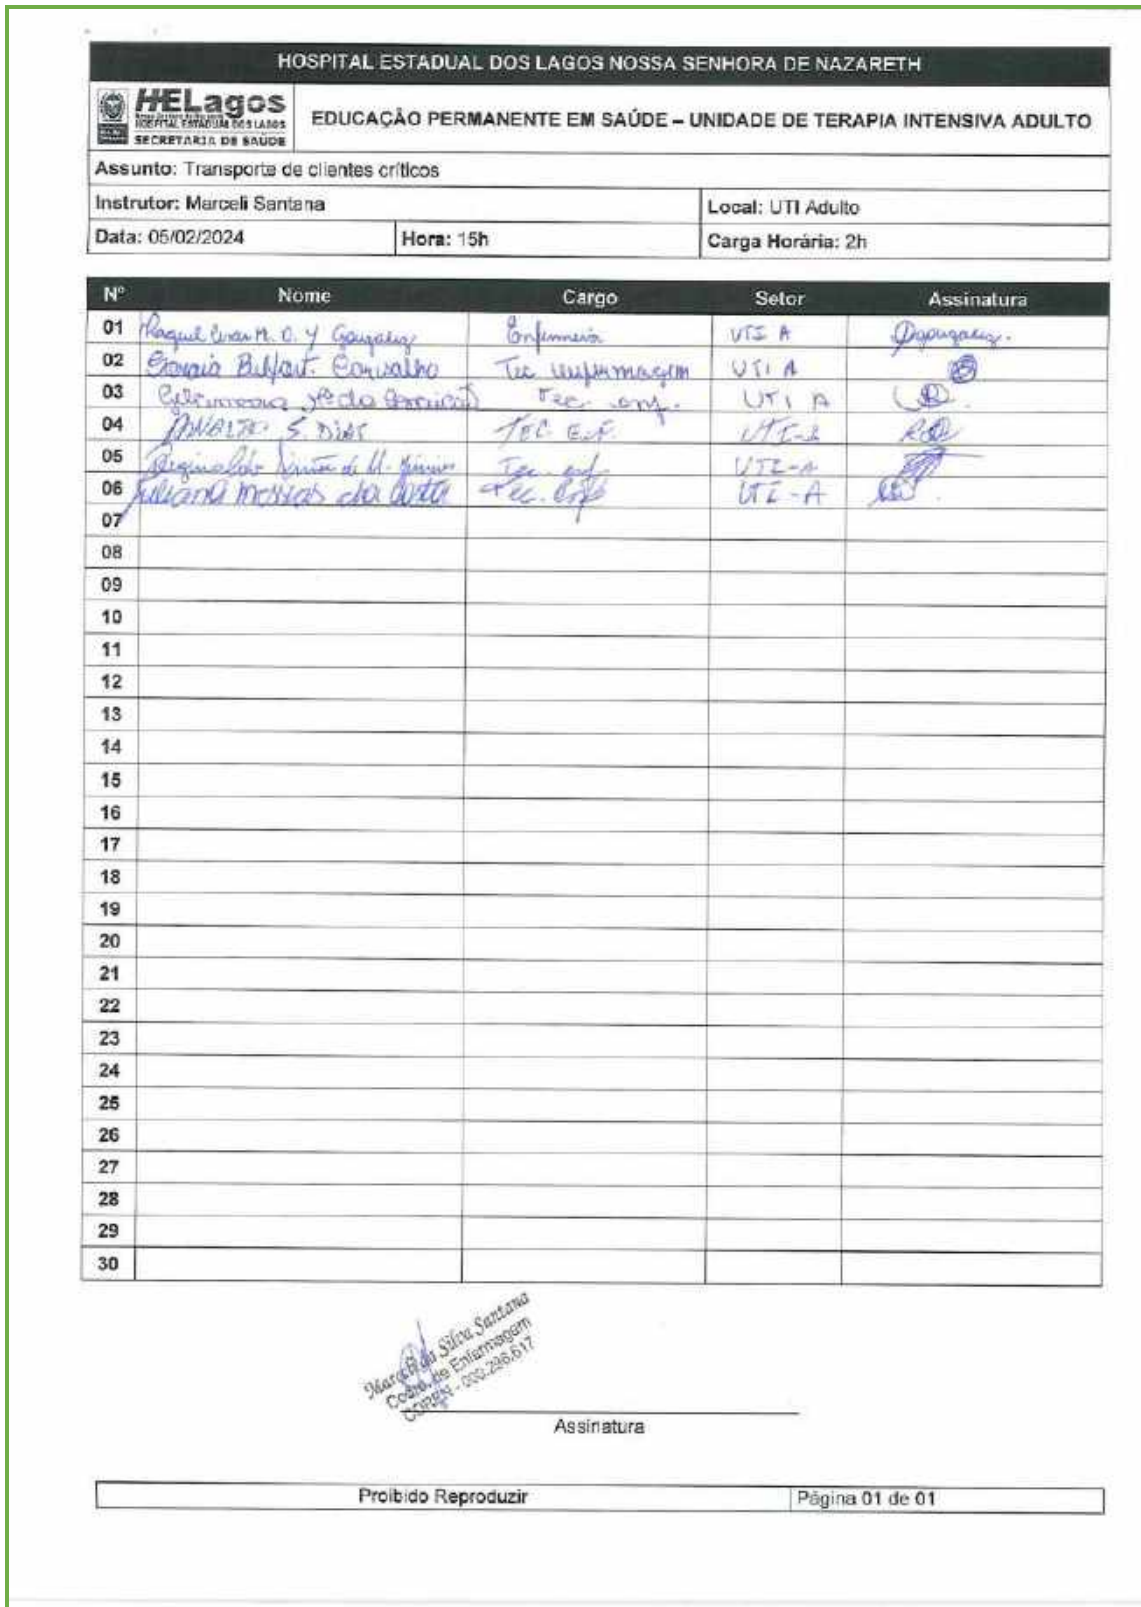 HOSPITAL ESTADUAL DOS LAGOS NOSSA SENHORA DE NAZARETH
HELagos
HOSPITAL ESTADUAL DOS LAGOS
SECRETARIA DE SAÚDE
EDUCAÇÃO PERMANENTE EM SAÚDE – UNIDADE DE TERAPIA INTENSIVA ADULTO
Assunto: Transporte de clientes críticos
Instrutor: Marceli Santana Local: UTI Adulto
Data: 05/02/2024 Hora: 15h Carga Horária: 2h
Nº Nome Cargo Setor Assinatura
01 Raquel M. O. Y Gonzalez Enfermeira UTI A
02 Carvalho Tec enfermagem UTI A
03 Tec. enf. UTI A
04 S. DIAS TEC. Enf.
05 Reginaldo de Tec. enf UTI-A
06 Juliana Messias da Costa Tec. Enf UTI-A
07
08
09
10
11
12
13
14
15
16
17
18
19
20
21
22
23
24
25
26
27
28
29
30
Silva Santana
de Enfermagem
COREN
Assinatura
Proibido Reproduzir Página 01 de 01